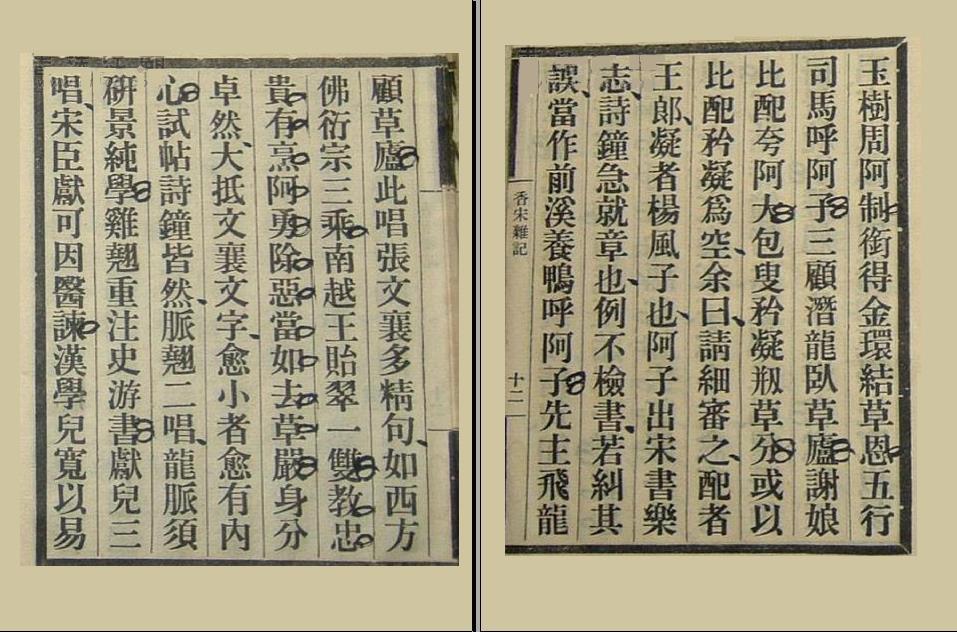 玉樹周阿制銜得金環結草恩五行
司馬呼阿子三顧潛龍臥草廬謝娘
比配夸阿大包叟矜凝剏草分或以
比配矜凝爲空余曰請細審之配者
王郞凝者楊風子也阿子出宋書樂
志詩鐘急就章也例不檢書若糾其
誤當作前溪養鴨呼阿子先主飛龍
香宋雜記
十二
顧草廬此唱張文襄多精句如西方
佛衍宗三乘南越王貽翠一雙教忠
貴有烹阿勇除惡當如去草嚴身分
卓然大抵文襄文字愈小者愈有內
心試帖詩鐘皆然脈翹二唱龍脈須
硏景純學雞翹重注史游書獻兒三
唱宋臣獻可因醫諫漢學兒寬以易